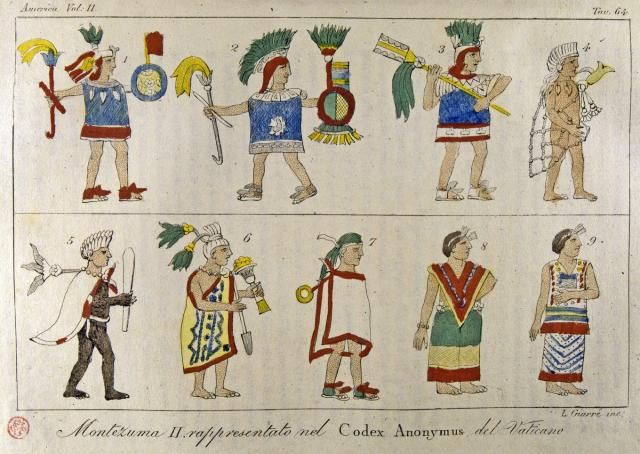 America Vol. II.
Tav. 64.
1
2
3
4
5
6
7
8
9
L. Gnarré inc.
Montézuma II. rappresentato nel Codex Anonymus del Vaticano